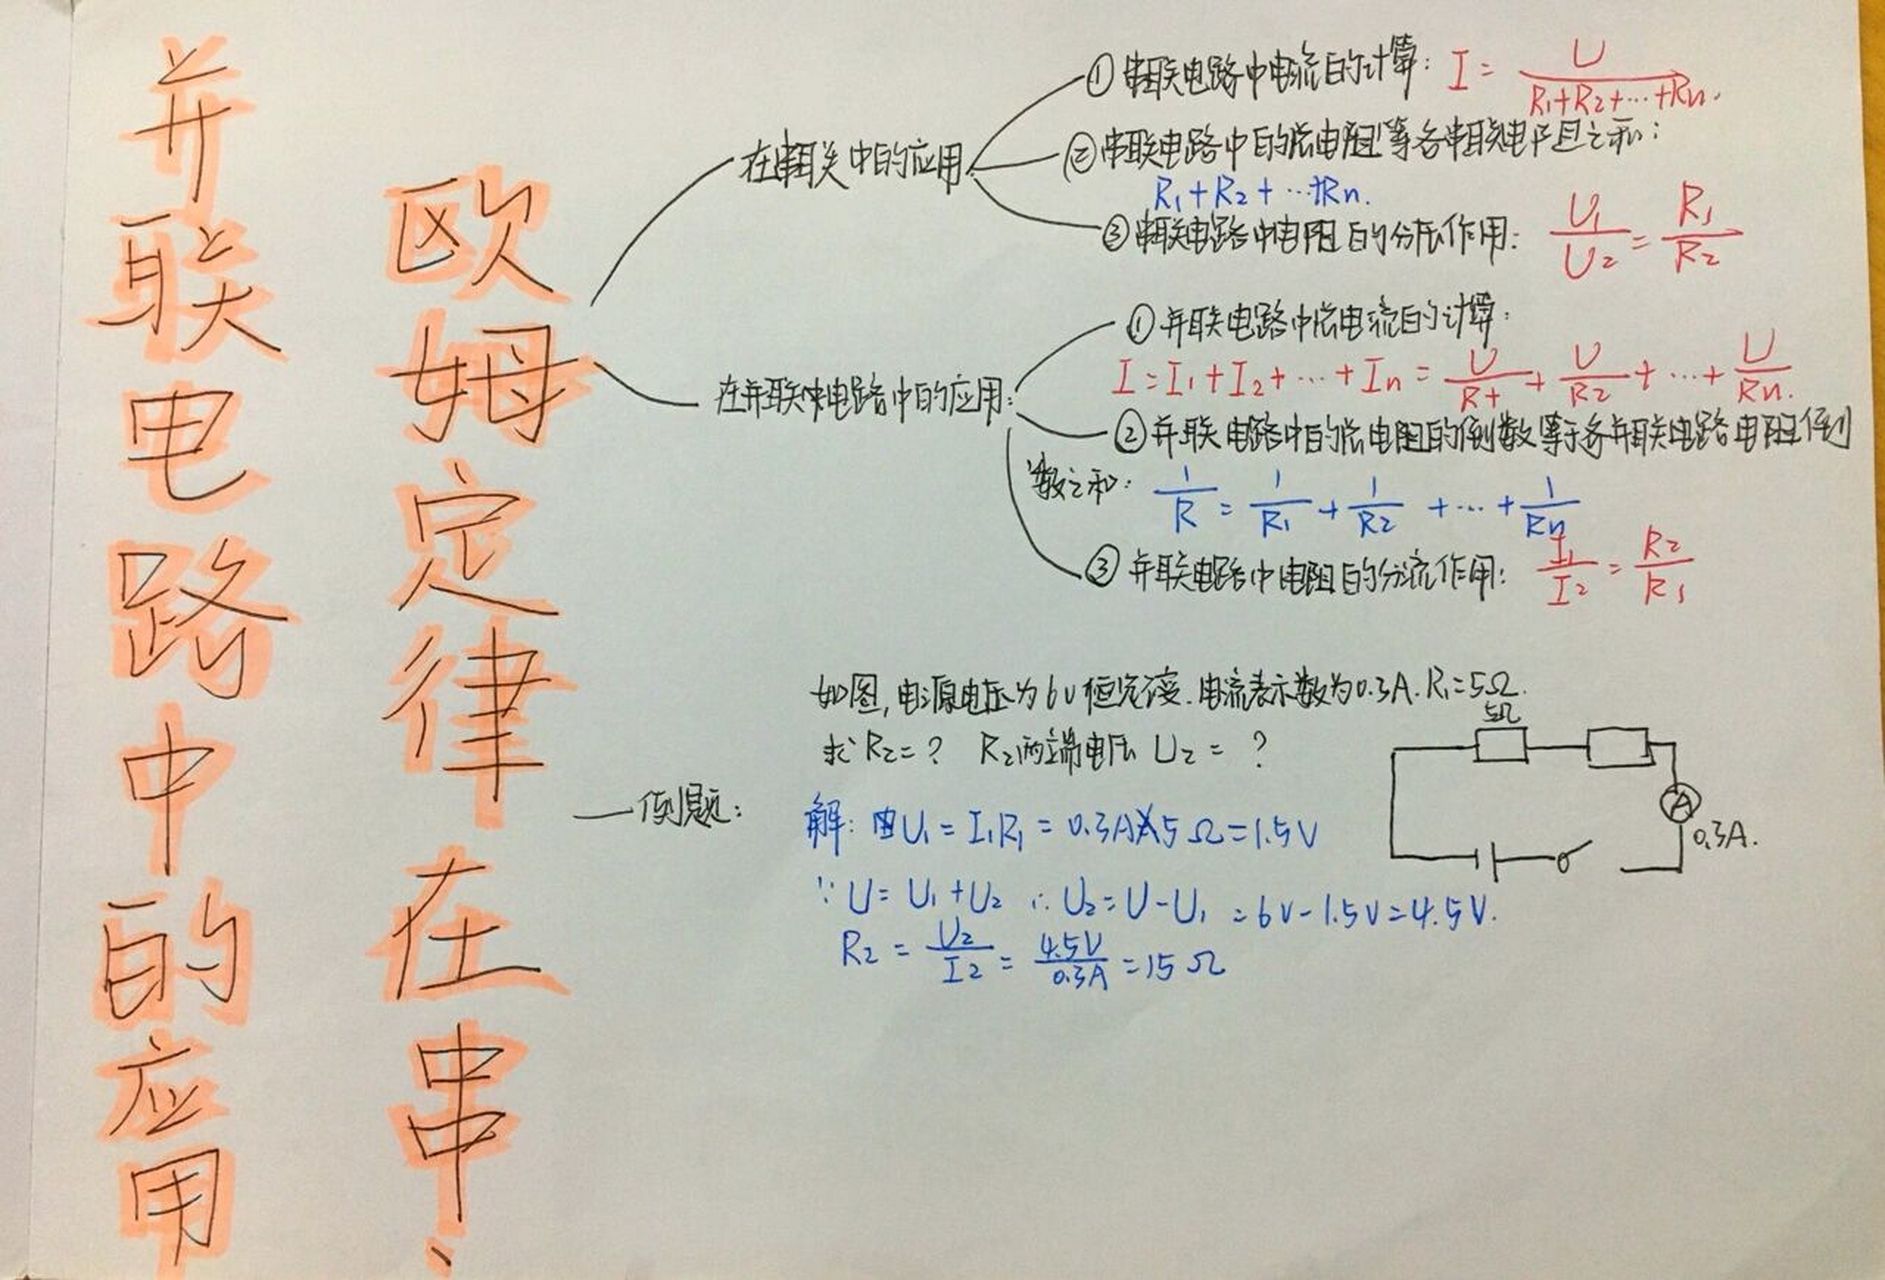 欧姆定律在串、
并联电路中的应用
在串联中的应用
①串联电路中电流的计算: I = U/(R₁+R₂+…+Rn.
②串联电路中的总电阻等各串联电阻之和:
R₁+R₂+…+Rn.
③串联电路中电阻的分压作用: U₁/U₂ = R₁/R₂
在并联电路中的应用:
①并联电路中总电流的计算:
I = I₁+I₂+…+In = U/R₁ + U/R₂ + … + U/Rn.
②并联电路中的总电阻的倒数等于各并联电路电阻倒
数之和: 1/R = 1/R₁ + 1/R₂ + … + 1/Rn
③并联电路中电阻的分流作用: I₁/I₂ = R₂/R₁
例题:
如图,电源电压为6V恒定不变.电流表示数为0.3A.R₁=5Ω.
求R₂=? R₂两端电压 U₂= ?
5Ω
A
0.3A.
解: 由U₁=I₁R₁=0.3A×5Ω=1.5V
∵U=U₁+U₂ ∴U₂=U-U₁=6V-1.5V=4.5V.
R₂ = U₂/I₂ = 4.5V/0.3A = 15Ω